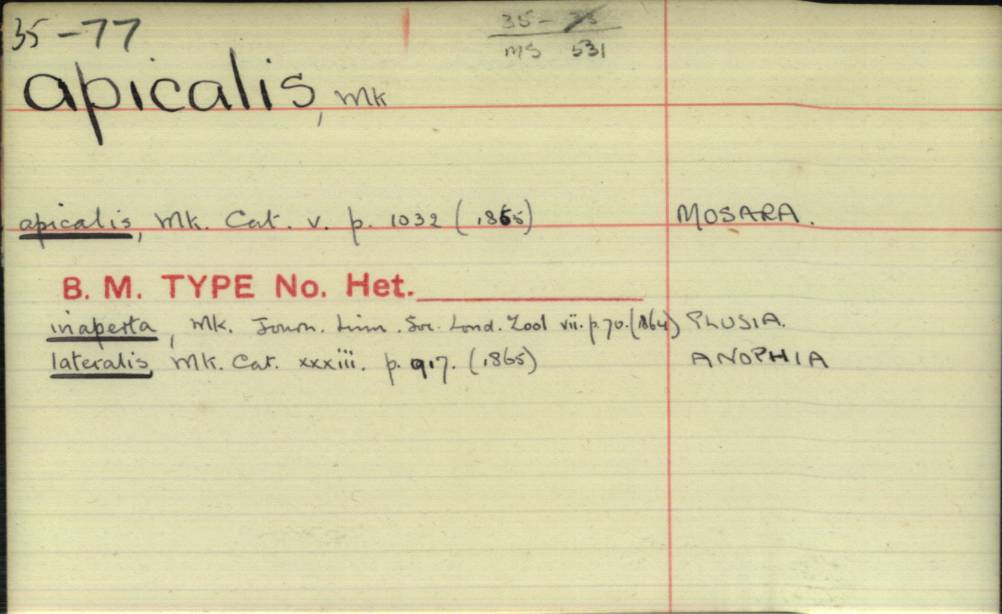 35-77
35- 75
MS 531
apicalis, Wlk
apicalis, Wlk. Cat. v. p. 1032 (1855) MOSARA.
B. M. TYPE No. Het.
inaperta, Wlk. Journ. Linn. Soc. Lond. Zool vii. p. 70. (1864) PLUSIA.
lateralis, Wlk. Cat. xxxiii. p. 917. (1865) ANOPHIA